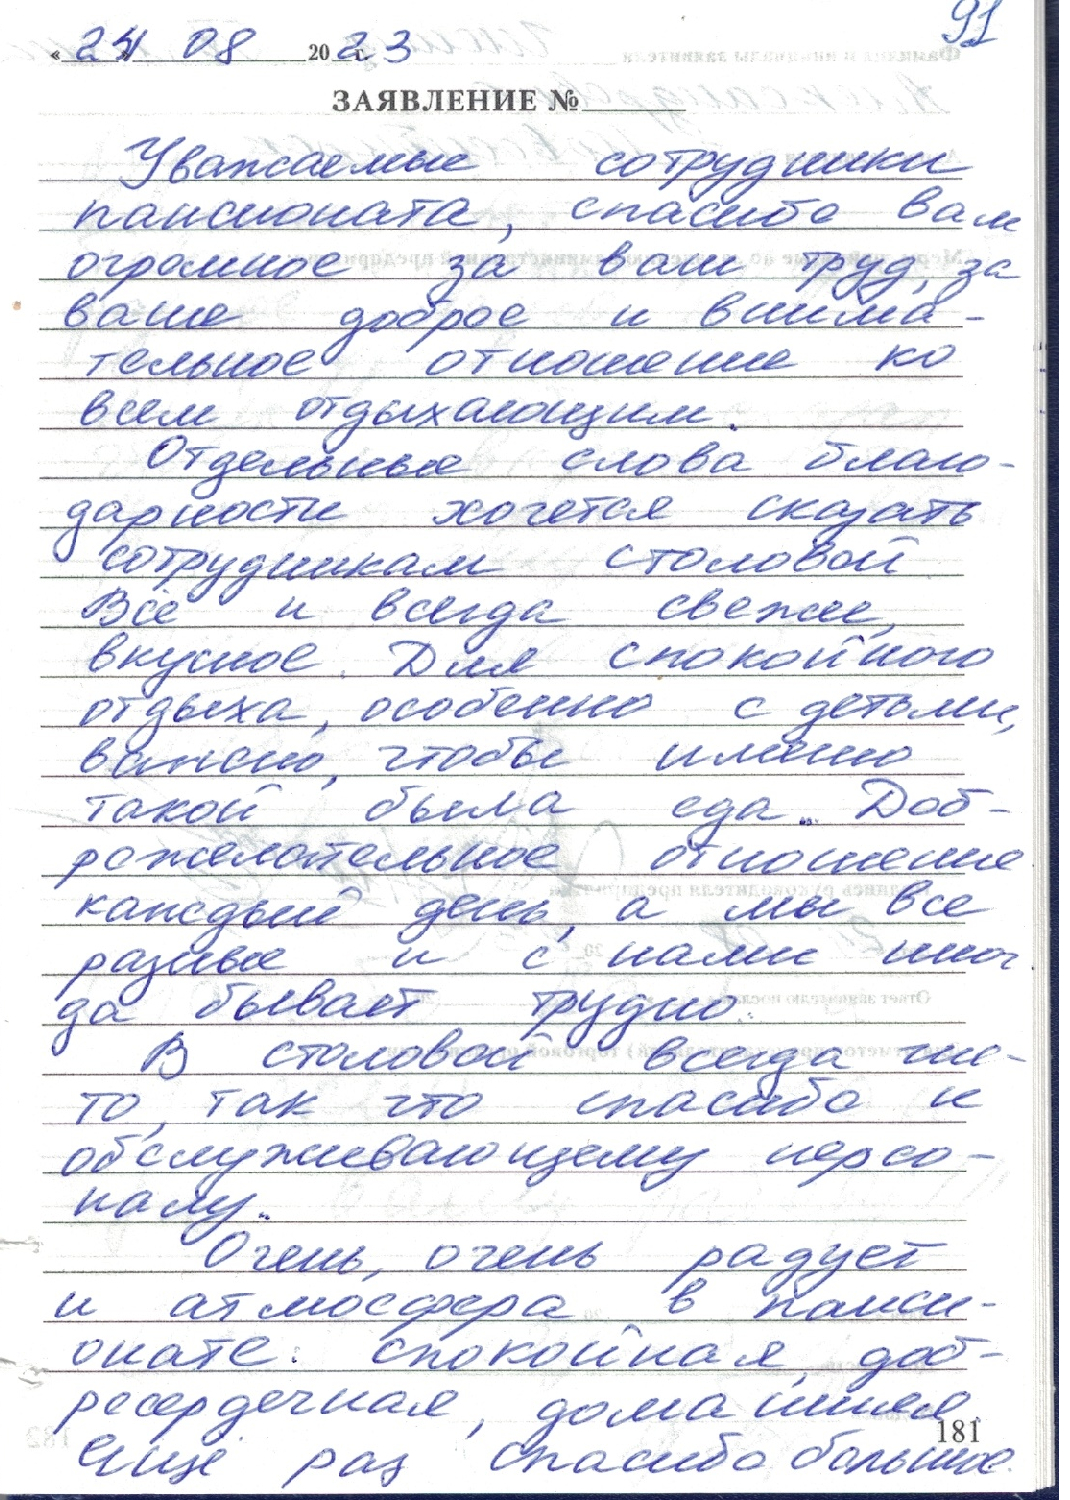 91
« 24 08 2023
ЗАЯВЛЕНИЕ №
Уважаемые сотрудники
пансионата, спасибо вам
огромное за ваш труд, за
ваше доброе и внима-
тельное отношение ко
всем отдыхающим.
Отдельные слова благо-
дарности хочется сказать
сотрудникам столовой
Всё и всегда свежее,
вкусное. Для спокойного
отдыха, особенно с детьми,
важно, чтобы именно
такой была еда. Доб-
рожелательное отношение
каждый день, а мы все
разные и с нами иног
да бывает трудно.
В столовой всегда чис-
то, так что спасибо и
обслуживающему персо-
налу.
Очень, очень радует
и атмосфера в панси-
онате: спокойная, доб-
росердечная, домашняя.
Ещё раз спасибо большое.
181